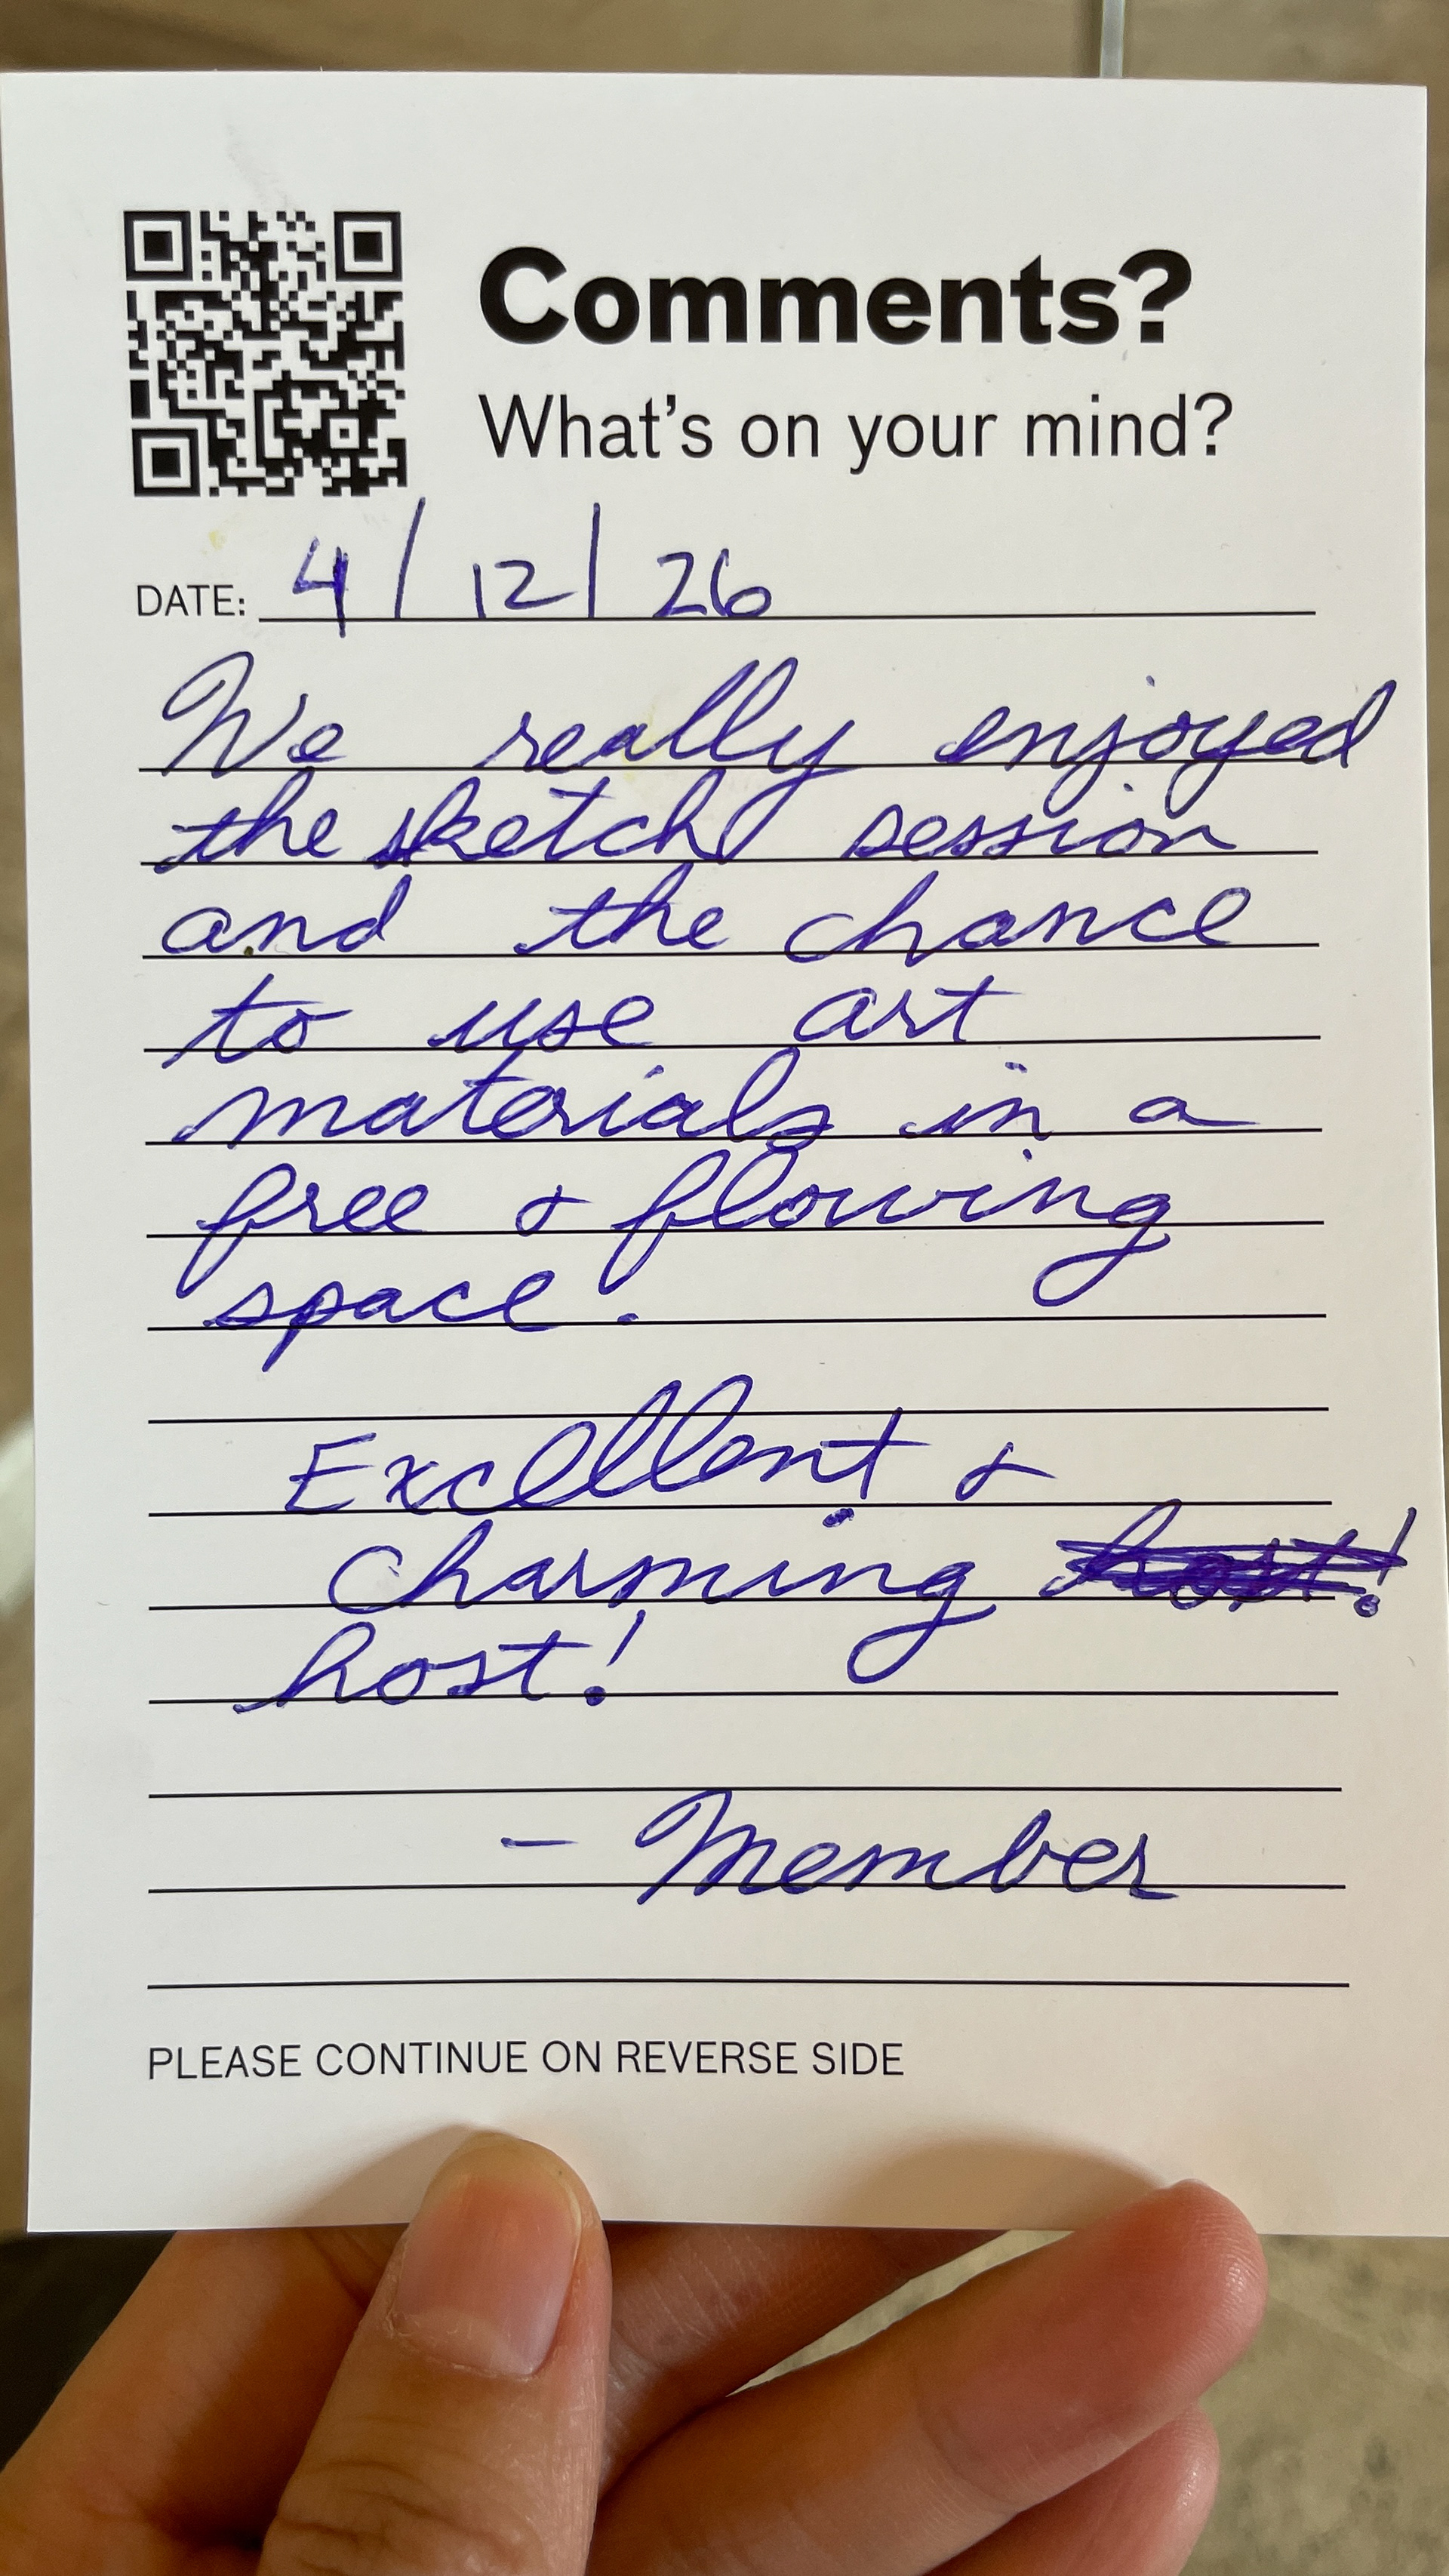 Comments?
What's on your mind?
DATE: 4/12/26
We really enjoyed
the sketch session
and the chance
to use art
materials in a
free & flowing
space.
Excellent &
charming host!
host!
- Member
PLEASE CONTINUE ON REVERSE SIDE